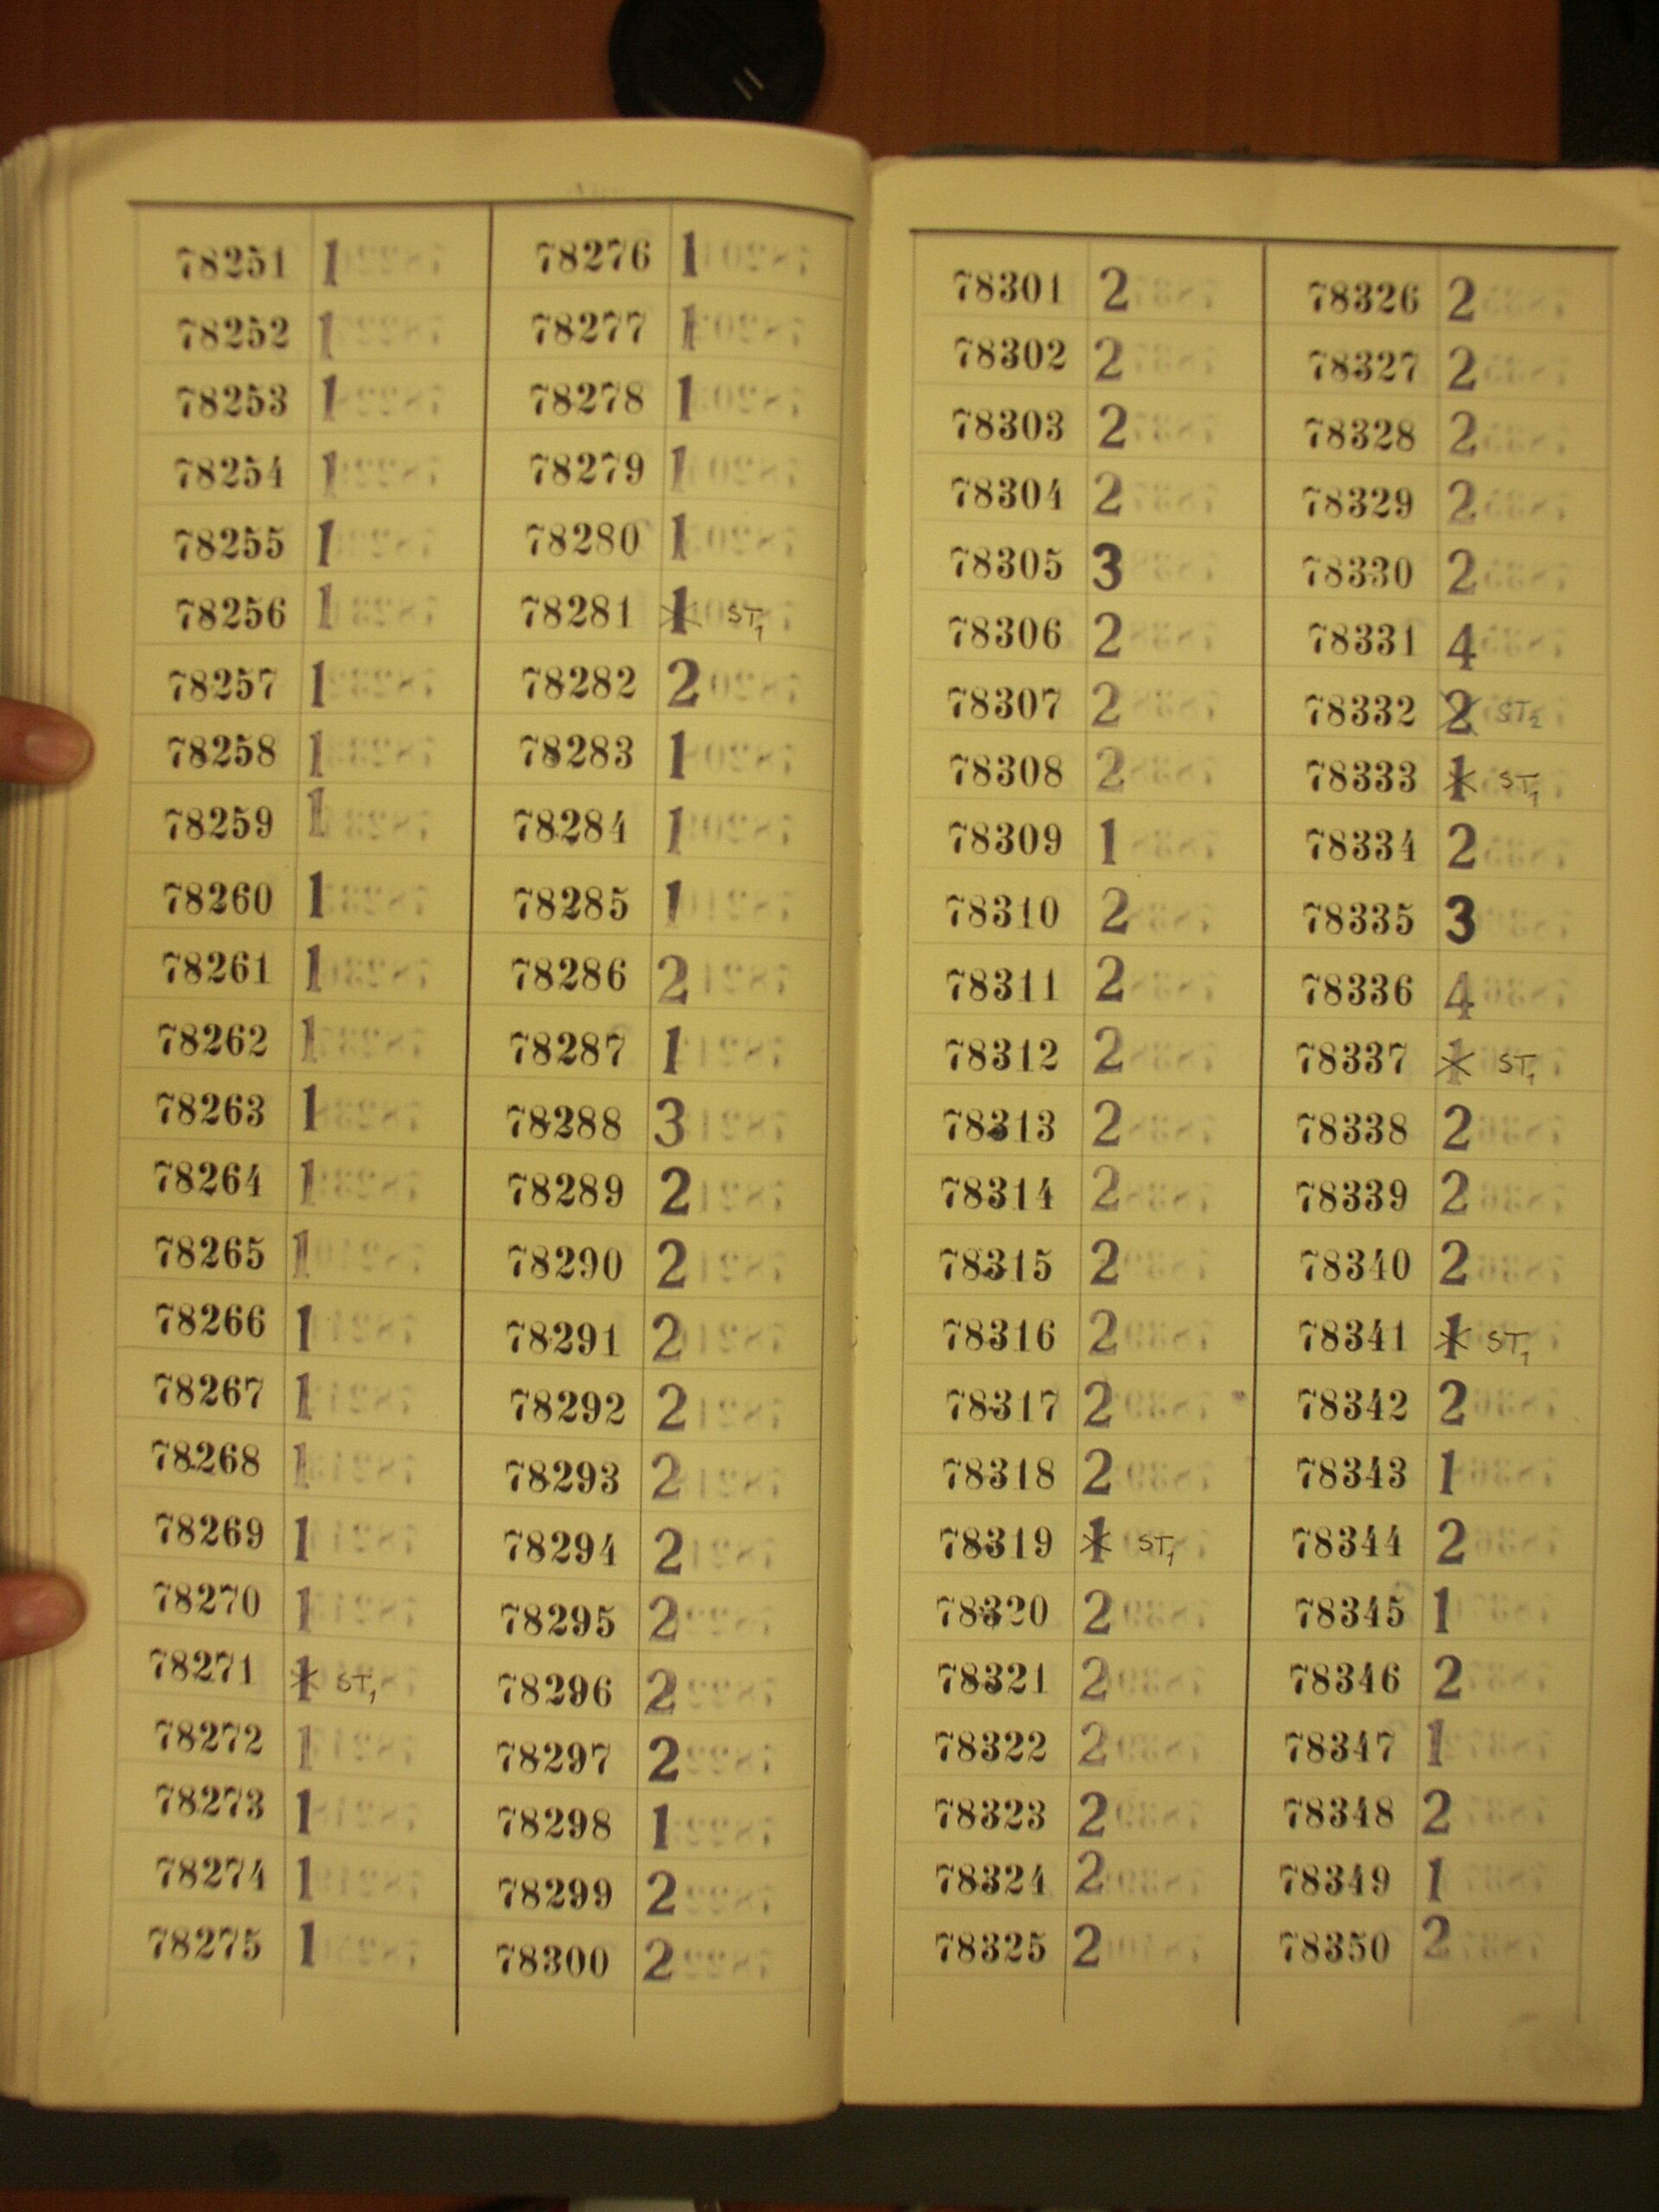 78251 1
78252 1
78253 1
78254 1
78255 1
78256 1
78257 1
78258 1
78259 1
78260 1
78261 1
78262 1
78263 1
78264 1
78265 1
78266 1
78267 1
78268 1
78269 1
78270 1
78271 1 ST1
78272 1
78273 1
78274 1
78275 1
78276 1
78277 1
78278 1
78279 1
78280 1
78281 1 ST1
78282 2
78283 1
78284 1
78285 1
78286 2
78287 1
78288 3
78289 2
78290 2
78291 2
78292 2
78293 2
78294 2
78295 2
78296 2
78297 2
78298 1
78299 2
78300 2
78301 2
78302 2
78303 2
78304 2
78305 3
78306 2
78307 2
78308 2
78309 1
78310 2
78311 2
78312 2
78313 2
78314 2
78315 2
78316 2
78317 2
78318 2
78319 1 ST1
78320 2
78321 2
78322 2
78323 2
78324 2
78325 2
78326 2
78327 2
78328 2
78329 2
78330 2
78331 4
78332 2 ST2
78333 1 ST1
78334 2
78335 3
78336 4
78337 1 ST1
78338 2
78339 2
78340 2
78341 1 ST1
78342 2
78343 1
78344 2
78345 1
78346 2
78347 1
78348 2
78349 1
78350 2